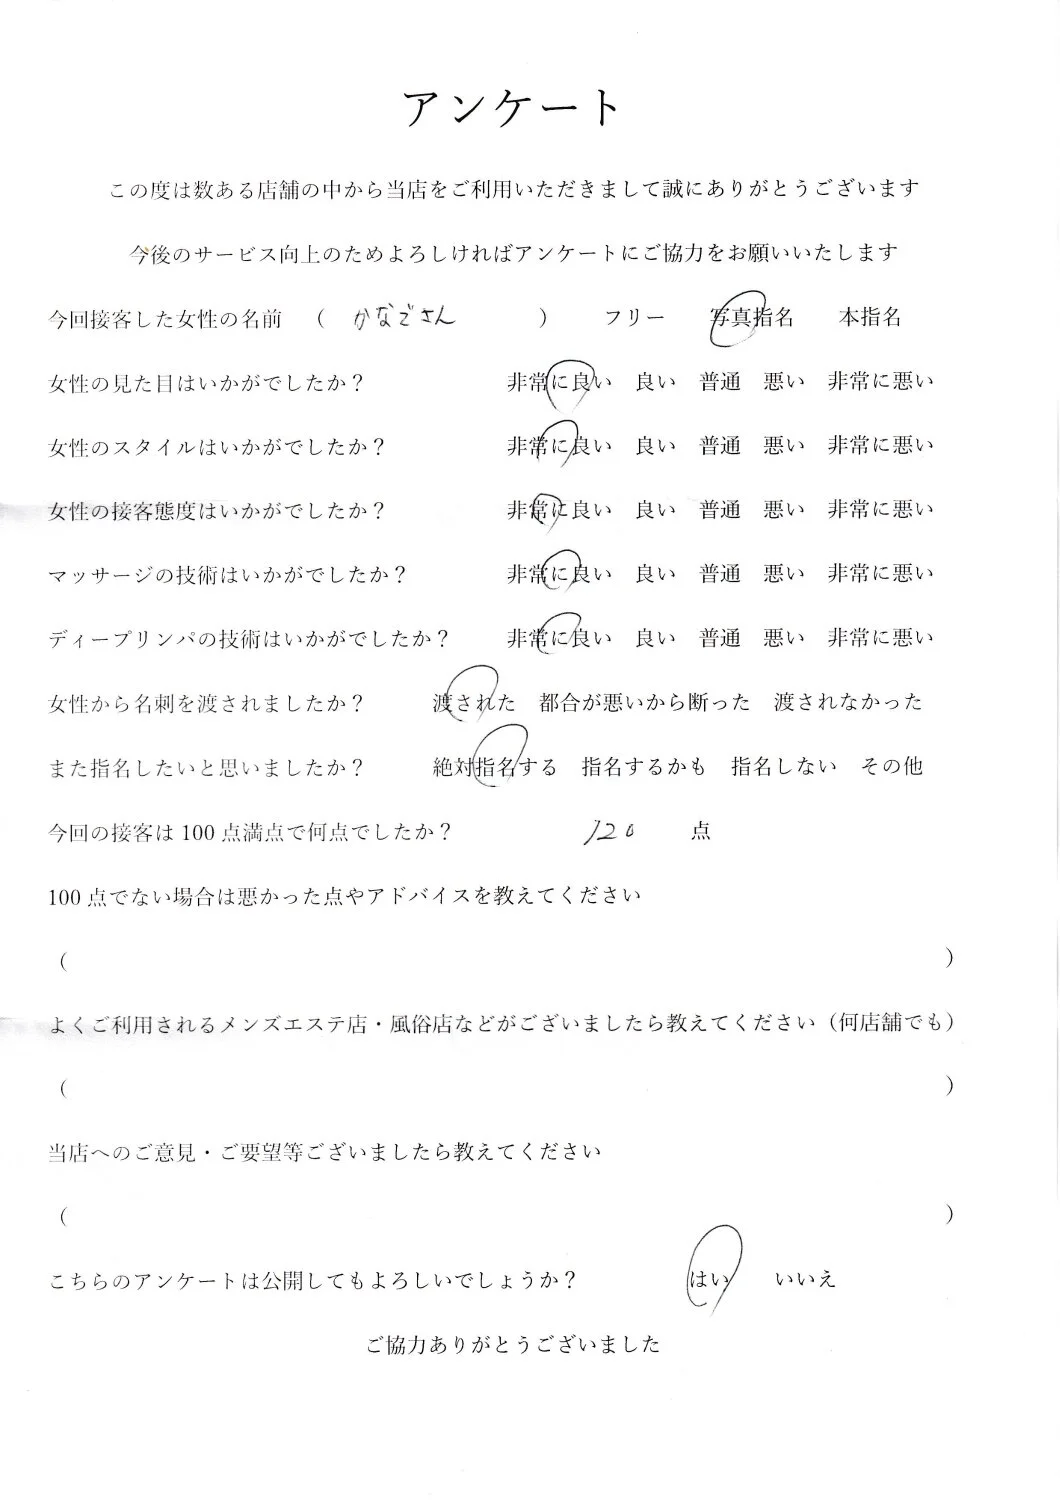 アンケート
この度は数ある店舗の中から当店をご利用いただきまして誠にありがとうございます
今後のサービス向上のためよろしければアンケートにご協力をお願いいたします
今回接客した女性の名前 ( かなでさん ) フリー 写真指名 本指名
女性の見た目はいかがでしたか？ 非常に良い 良い 普通 悪い 非常に悪い
女性のスタイルはいかがでしたか？ 非常に良い 良い 普通 悪い 非常に悪い
女性の接客態度はいかがでしたか？ 非常に良い 良い 普通 悪い 非常に悪い
マッサージの技術はいかがでしたか？ 非常に良い 良い 普通 悪い 非常に悪い
ディープリンパの技術はいかがでしたか？ 非常に良い 良い 普通 悪い 非常に悪い
女性から名刺を渡されましたか？ 渡された 都合が悪いから断った 渡されなかった
また指名したいと思いましたか？ 絶対指名する 指名するかも 指名しない その他
今回の接客は 100 点満点で何点でしたか？ 120 点
100 点でない場合は悪かった点やアドバイスを教えてください
( )
よくご利用されるメンズエステ店・風俗店などがございましたら教えてください（何店舗でも）
( )
当店へのご意見・ご要望等ございましたら教えてください
( )
こちらのアンケートは公開してもよろしいでしょうか？ はい いいえ
ご協力ありがとうございました